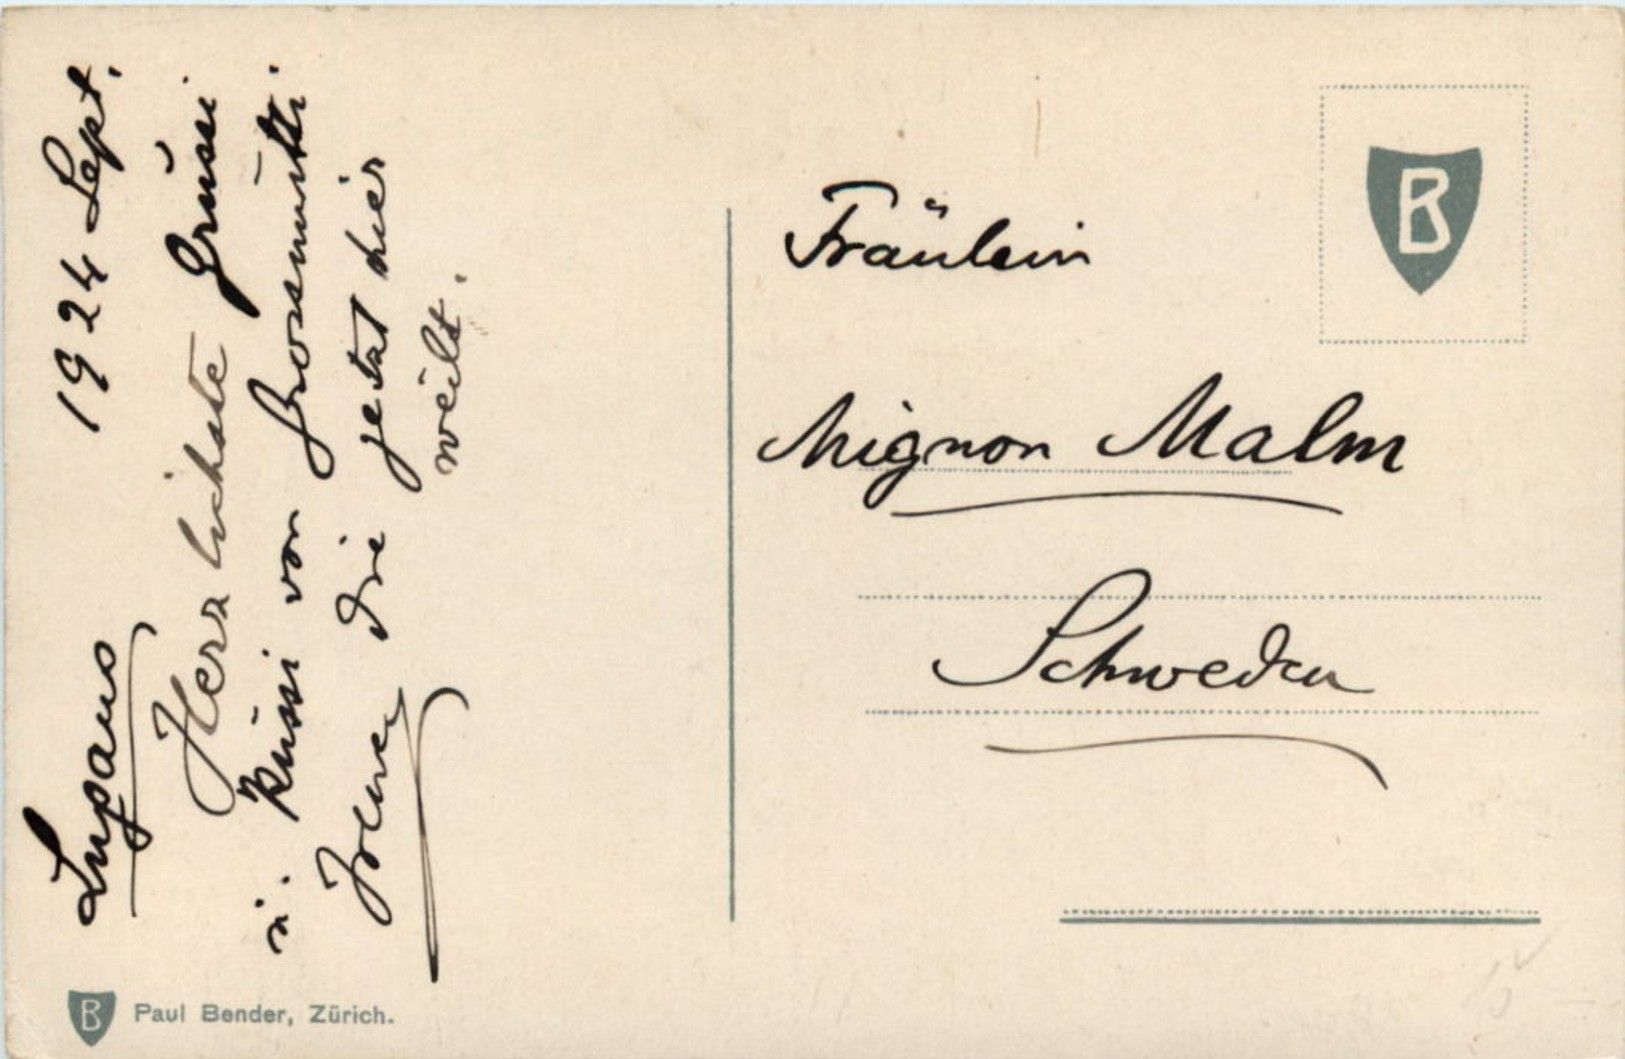 Lugano 1924 Sept.
Herzlichste Grüssi
u. Küssi von Grosmutti
Irene die jetzt hier
weilt.
Fräulein
Mignon Malm
Schweden
B
B Paul Bender, Zürich.